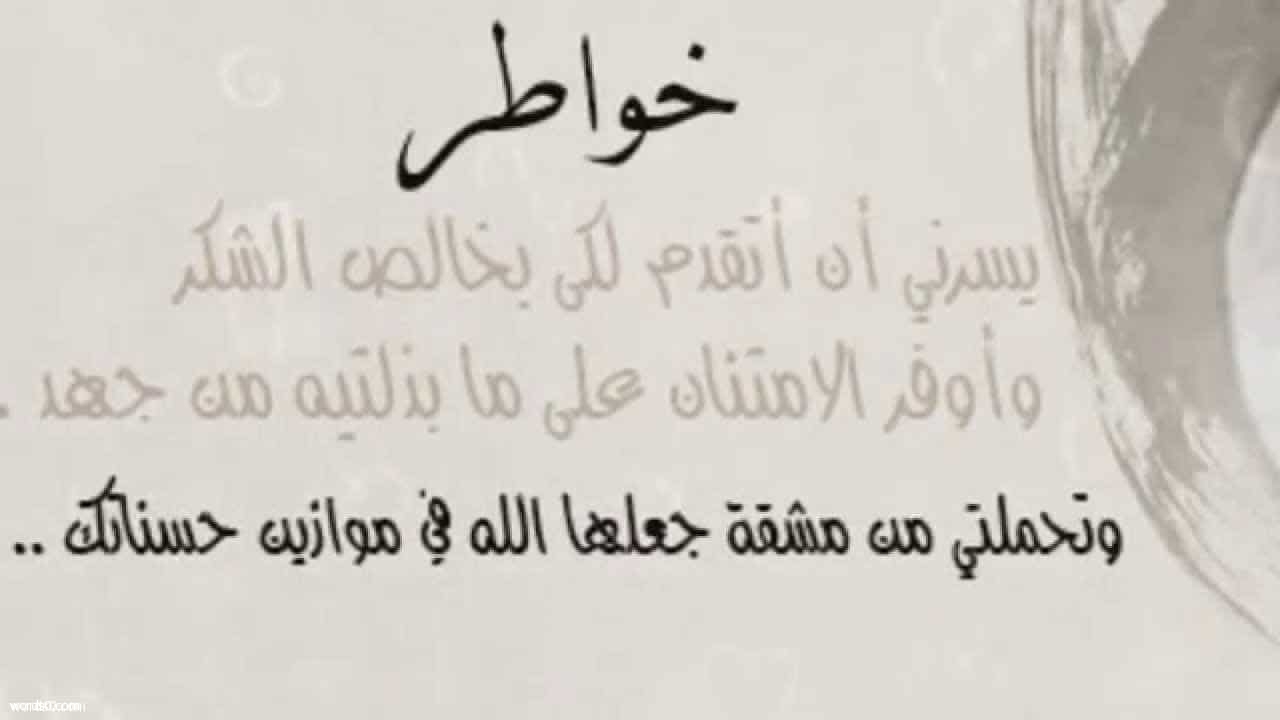 خواطر
يسرني أن أتقدم لكى بخالص الشكر
وأوفر الامتنان على ما بذلتيه من جهد .
وتحملتي من مشقة جعلها الله في موازين حسناتك ..